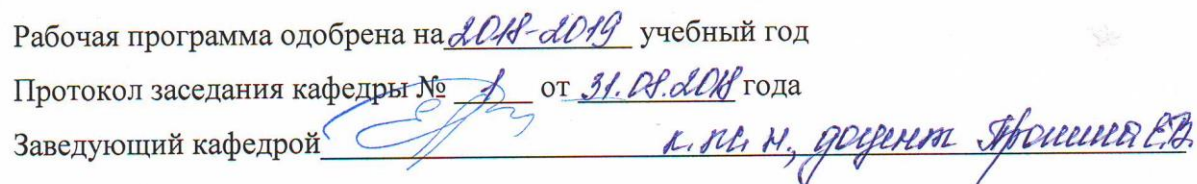 Рабочая программа одобрена на 2018-2019 учебный год
Протокол заседания кафедры № 1 от 31.08.2018 года
Заведующий кафедрой к.пс.н., доцент Пронина Е.В.